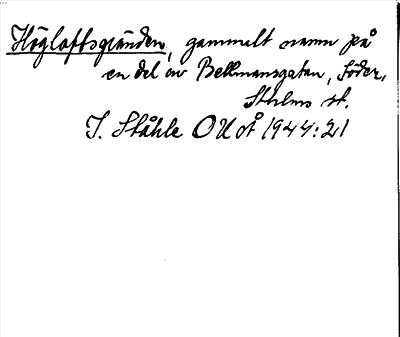 Högloftsgränden, gammalt namn på
en del av Bellmansgatan, Söder,
Sthlms st.
I. Ståhle OUÅ 1944:21